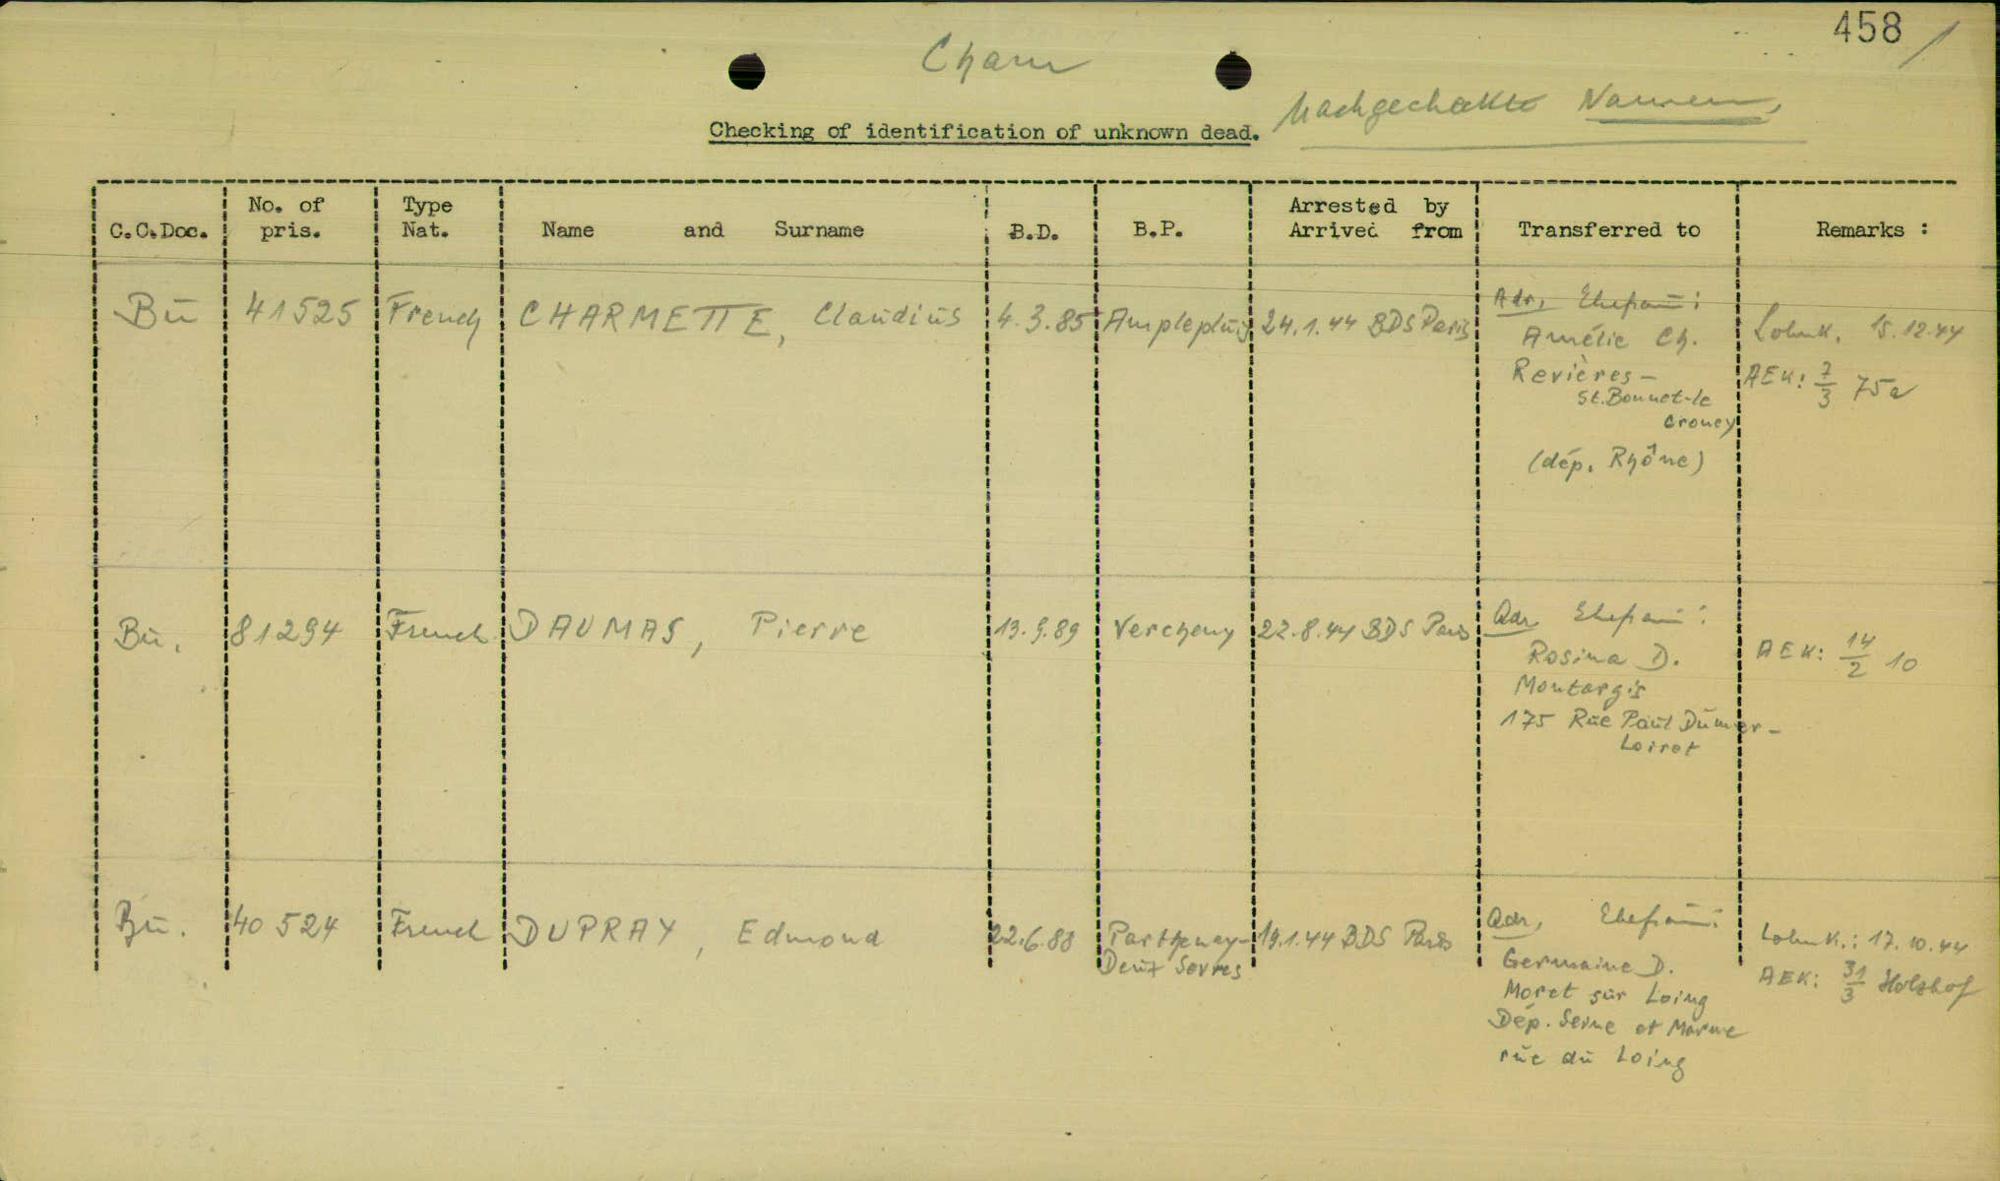 458
Cham
Nachgecheckte Namen,
Checking of identification of unknown dead.
C.C.Doc. No. of pris. Type Nat. Name and Surname B.D. B.P. Arrested by Arrived from Transferred to Remarks :
Bu 41525 French CHARMETTE, Claudius 4.3.85 Amplepluis 24.1.44 BDS Paris
Adr, Ehefrau:
Amélie Ch.
Revières-
St.Bonnet-le
Croney
(dép. Rhône)
Lohnk. 15.12.44
AEK: 7/3 75a
Bu. 81294 French DAUMAS, Pierre 13.9.89 Vercheny 22.8.44 BDS Paris
Adr. Ehefrau:
Rosina D.
Montargis
175 Rue Paul Dumer-
Loiret
AEK: 14/2 10
Bu. 40524 French DUPRAY, Edmond 22.6.88 Parthenay- 19.1.44 BDS Paris
Deux Sevres
Adr, Ehefrau:
Germaine D.
Moret sur Loing
Dép. Seine et Marne
rue du Loing
Lohnk.: 17.10.44
AEK: 31/3 Holzhof